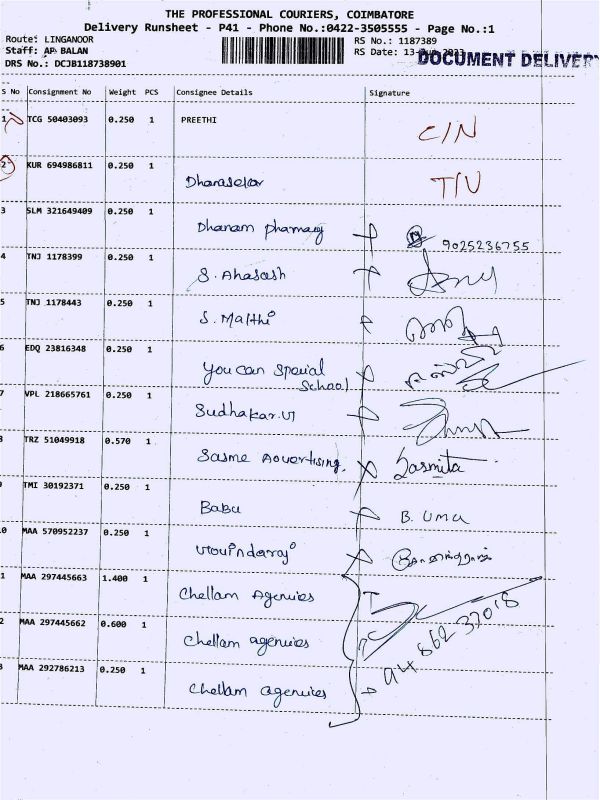 THE PROFESSIONAL COURIERS, COIMBATORE
Delivery Runsheet - P41 - Phone No.:0422-3505555 - Page No.:1
Route: LINGANOOR
Staff: AP BALAN
DRS No.: DCJB118738901
RS No.: 1187389
RS Date: 13-Jun-2023
DOCUMENT DELIVERY
S No Consignment No Weight PCS Consignee Details Signature
1 TCG 50403093 0.250 1 PREETHI C/N
2 KUR 694986811 0.250 1 Dhanasekar T/N
3 SLM 321649409 0.250 1 Dhanam pharmacy 9025236755
4 TNJ 1178399 0.250 1 S. Akasash
5 TNJ 1178443 0.250 1 S. Malthi
6 EDQ 23816348 0.250 1 you can special School
7 VPL 218665761 0.250 1 Sudhakar.VI
8 TRZ 51049918 0.570 1 Sasme Advertising. Sasmita
9 TMI 30192371 0.250 1 Babu B. Uma
0 MAA 570952237 0.250 1
1 MAA 297445663 1.400 1 Chellam Agencies
2 MAA 297445662 0.600 1 Chellam agencies
3 MAA 292786213 0.250 1 Chellam agencies
94 862 37018